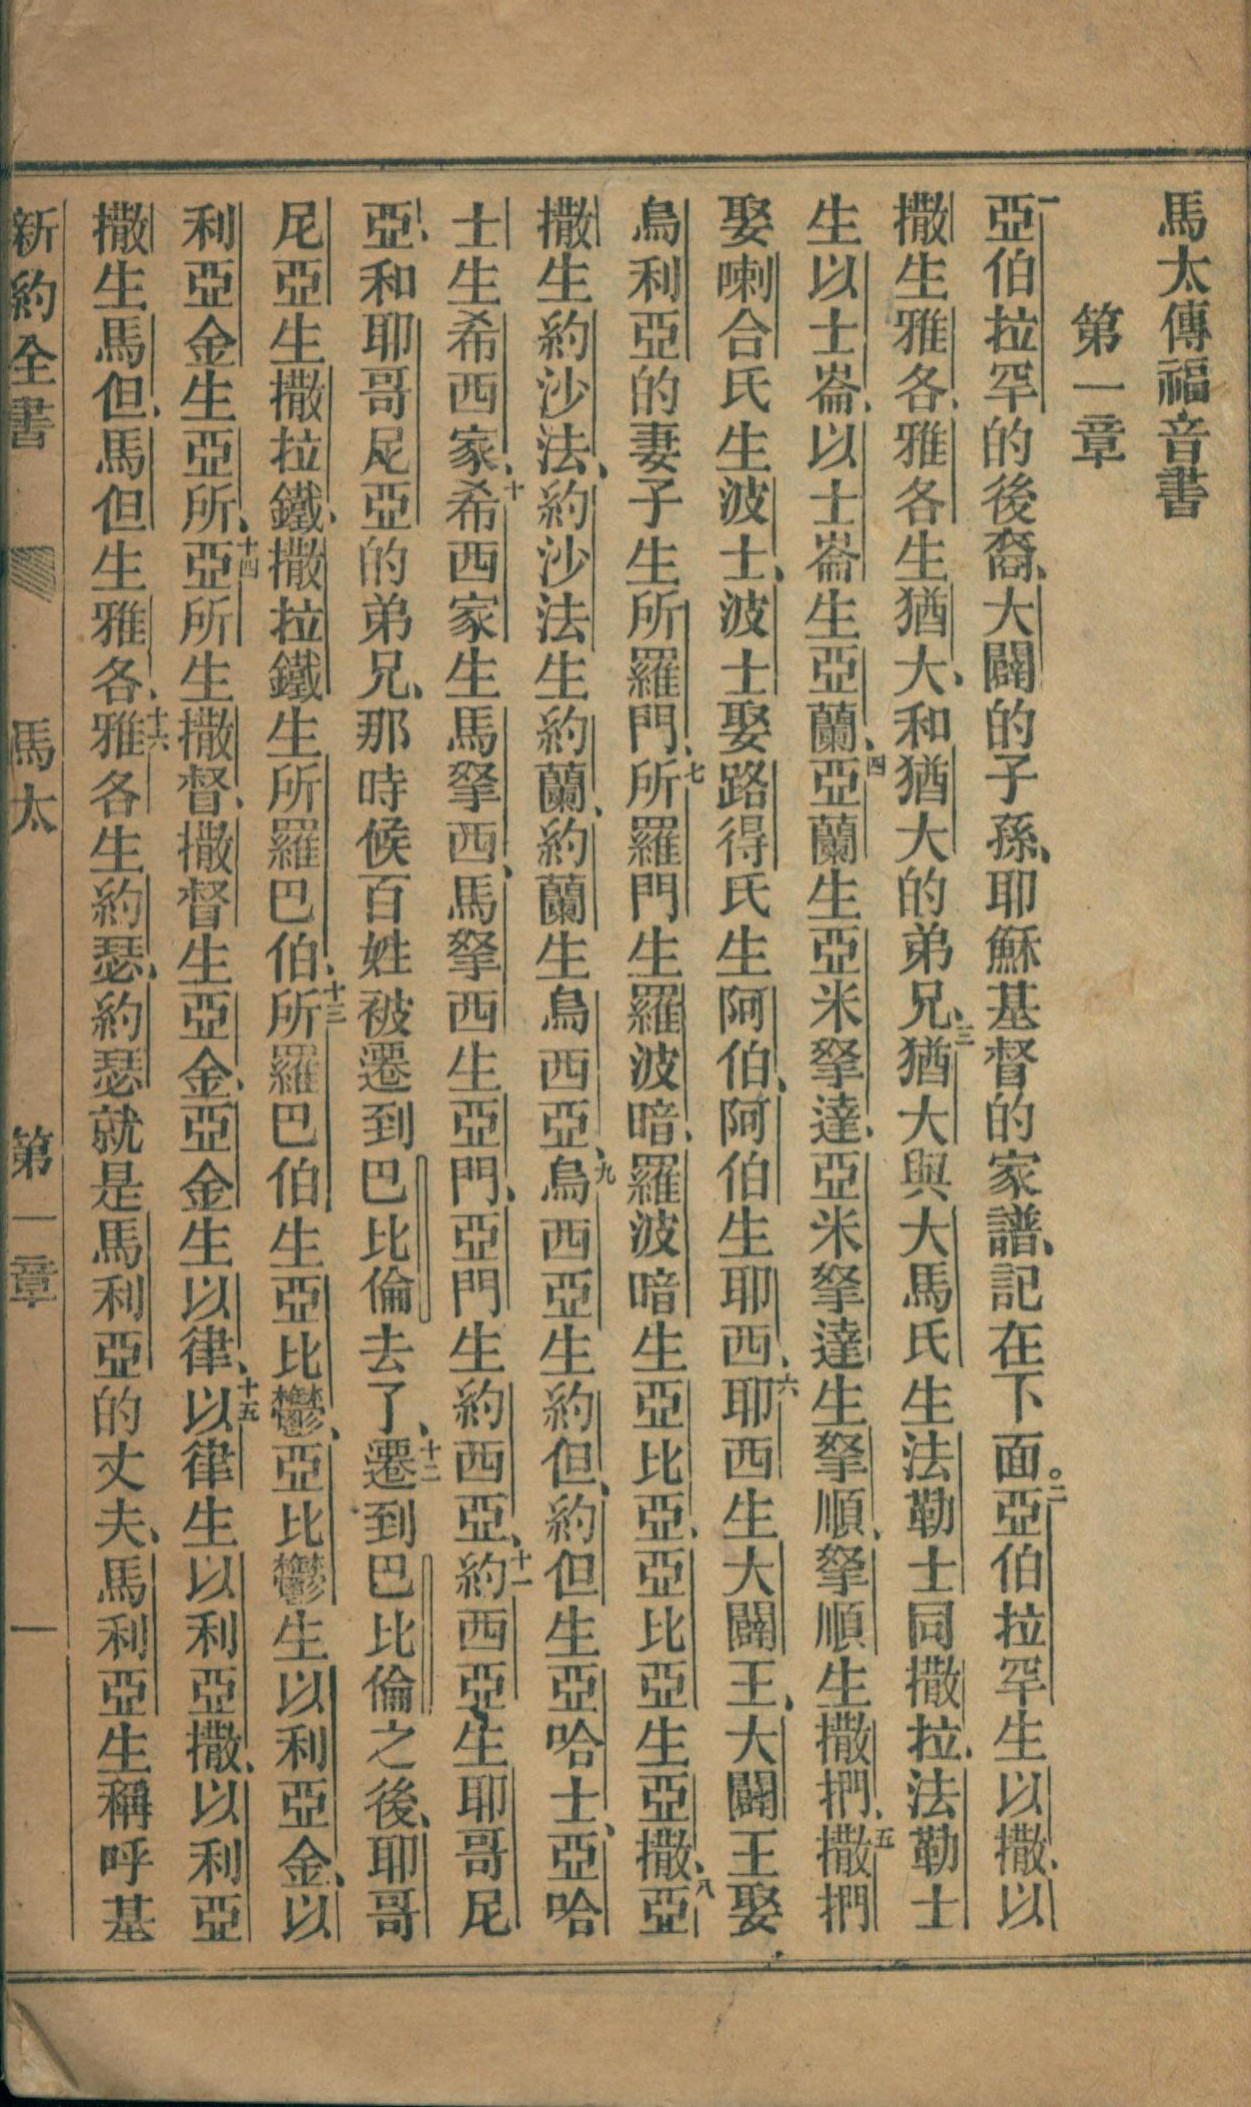 馬太傳福音書
第一章
一亞伯拉罕的後裔、大闢的子孫、耶穌基督的家譜、記在下面。二亞伯拉罕生以撒、以
撒生雅各、雅各生猶大、和猶大的弟兄、三猶大與大馬氏生法勒士同撒拉、法勒士
生以士崙、以士崙生亞蘭、四亞蘭生亞米拏達、亞米拏達生拏順、拏順生撒捫、五撒捫
娶喇合氏生波士、波士娶路得氏生阿伯、阿伯生耶西、六耶西生大闢王、大闢王娶
烏利亞的妻子生所羅門、七所羅門生羅波暗、羅波暗生亞比亞、亞比亞生亞撒、八亞
撒生約沙法、約沙法生約蘭、約蘭生烏西亞、九烏西亞生約但、約但生亞哈士、亞哈
士生希西家、十希西家生馬拏西、馬拏西生亞門、亞門生約西亞、十一約西亞生耶哥尼
亞、和耶哥尼亞的弟兄、那時候百姓被遷到巴比倫去了、十二遷到巴比倫之後、耶哥
尼亞生撒拉鐵、撒拉鐵生所羅巴伯、十三所羅巴伯生亞比鬱、亞比鬱生以利亞金、以
利亞金生亞所、十四亞所生撒督、撒督生亞金、亞金生以律、十五以律生以利亞撒、以利亞
撒生馬但、馬但生雅各、十六雅各生約瑟、約瑟就是馬利亞的丈夫、馬利亞生稱呼基
新約全書 馬太 第一章 一